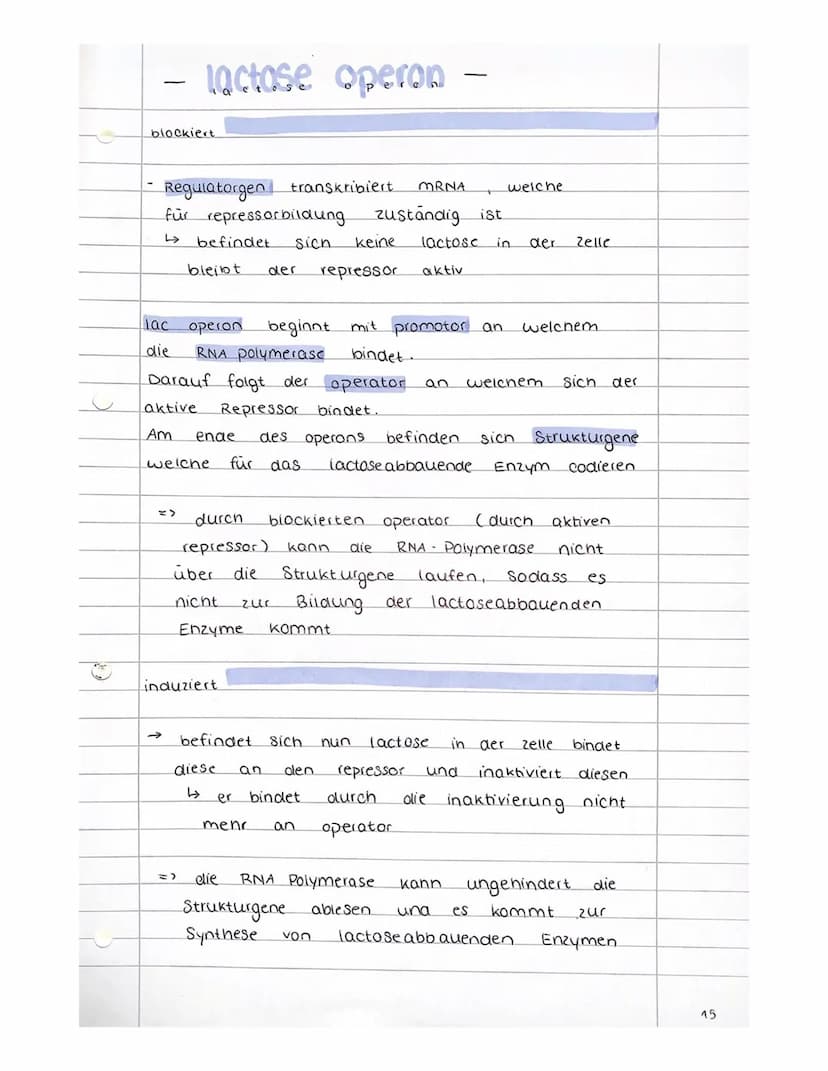 — lactose operon —
lactose operon
blockiert
- Regulatorgen transkribiert mRNA, welche
für repressorbildung zuständig ist
↳ befindet sich keine lactose in der zelle
bleibt der repressor aktiv
lac operon beginnt mit promotor an welchem
die RNA polymerase bindet.
Darauf folgt der operator an welchem sich der
aktive Repressor bindet.
Am ende des operons befinden sich Strukturgene
welche für das lactoseabbauende Enzym codieren
=> durch blockierten operator (durch aktiven
repressor) kann die RNA-Polymerase nicht
über die Strukturgene laufen, sodass es
nicht zur Bildung der lactoseabbauenden
Enzyme kommt
induziert
→ befindet sich nun lactose in der zelle bindet
diese an den repressor und inaktiviert diesen
↳ er bindet durch die inaktivierung nicht
mehr an operator
=> die RNA Polymerase kann ungehindert die
Strukturgene ablesen und es kommt zur
Synthese von lactoseabbauenden Enzymen
15